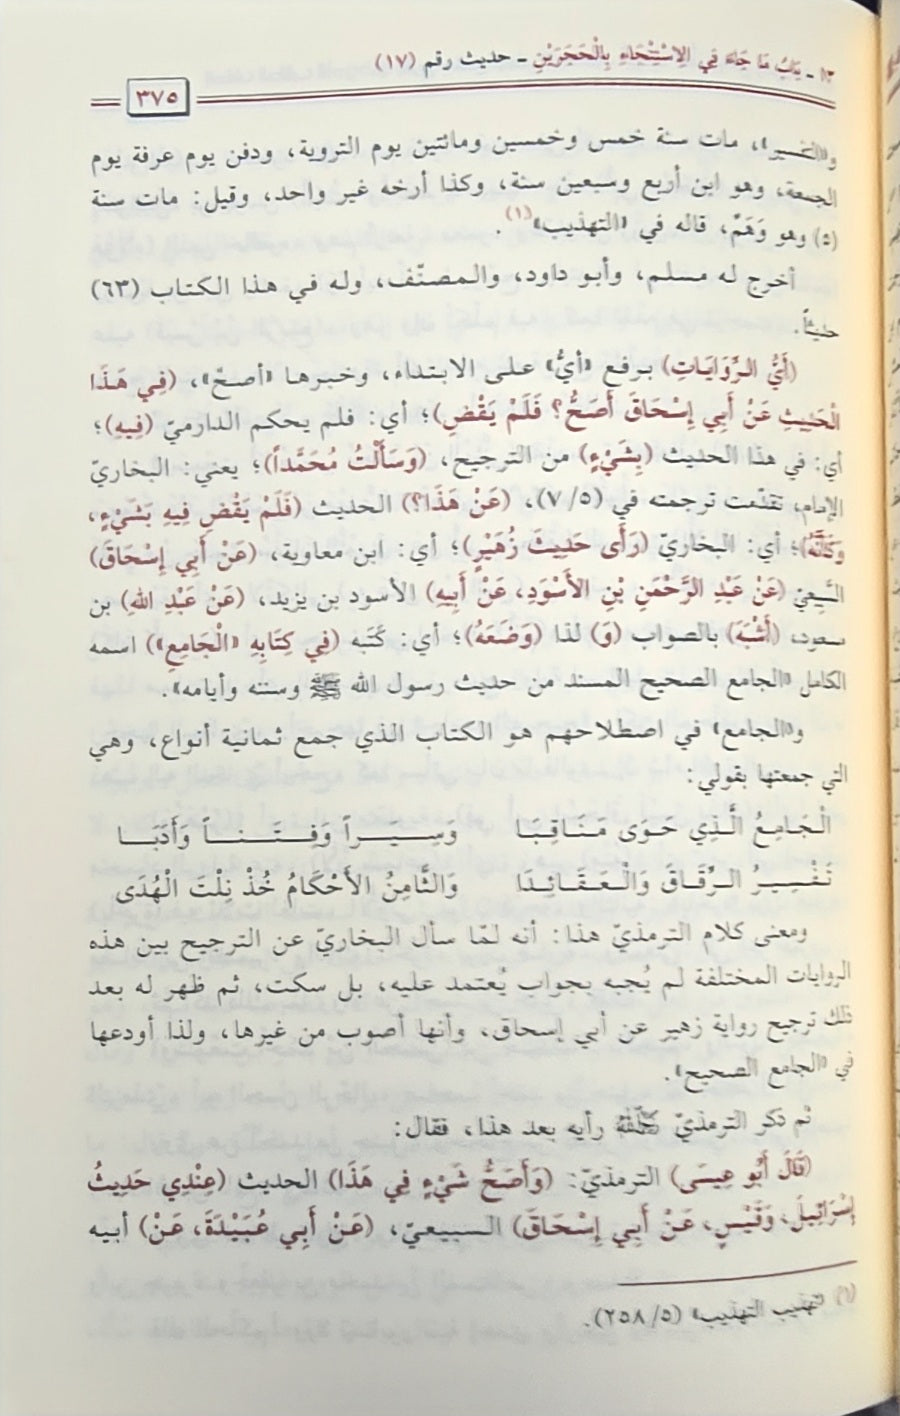 ١٣ - بَابُ مَا جَاءَ فِي الِاسْتِنْجَاءِ بِالْحَجَرَيْنِ - حديث رقم (١٧)
٣٧٥
و«التفسير»، مات سنة خمس وخمسين ومائتين يوم التروية، ودفن يوم عرفة يوم
الجمعة، وهو ابن أربع وسبعين سنة، وكذا أرخه غير واحد، وقيل: مات سنة
(٥) وهو وَهَمٌ، قاله في «التهذيب»(١).
أخرج له مسلم، وأبو داود، والمصنّف، وله في هذا الكتاب (٦٣)
حديثاً.
(أَيُّ الرِّوَايَاتِ) برفع «أيُّ» على الابتداء، وخبرها «أصحّ»، (فِي هَذَا
الْحَدِيثِ عَنْ أَبِي إِسْحَاقَ أَصَحُّ؟ فَلَمْ يَقْضِ)؛ أي: فلم يحكم الدارميّ (فِيهِ)؛
أي: في هذا الحديث (بِشَيْءٍ) من الترجيح، (وَسَأَلْتُ مُحَمَّداً)؛ يعني: البخاريّ
الإمام، تقدّمت ترجمته في (٧/٥)، (عَنْ هَذَا؟) الحديث (فَلَمْ يَقْضِ فِيهِ بَشَيْءٍ،
وَكَأَنَّهُ)؛ أي: البخاريّ (رَأَى حَدِيثَ زُهَيْرٍ)؛ أي: ابن معاوية، (عَنْ أَبِي إِسْحَاقَ)
السَّبِيعيّ (عَنْ عَبْدِ الرَّحْمَنِ بْنِ الأَسْوَدِ، عَنْ أَبِيهِ) الأسود بن يزيد، (عَنْ عَبْدِ اللهِ) بن
مسعود، (أَشْبَهَ) بالصواب (وَ) لذا (وَضَعَهُ)؛ أي: كَتَبه (فِي كِتَابِهِ «الْجَامِعِ») اسمه
الكامل «الجامع الصحيح المسند من حديث رسول الله ﷺ وسننه وأيامه».
و«الجامع» في اصطلاحهم هو الكتاب الذي جمع ثمانية أنواع، وهي
التي جمعتها بقولي:
الْجَامِعُ الَّذِي حَوَى مَنَاقِبَا وَسِيَراً وَفِتَناً وَأَدَبَا
تَفْسِيرُ الرِّقَاقَ وَالْعَقَائِدَا وَالثَّامِنُ الأَحْكَامُ خُذْ نِلْتَ الْهُدَى
ومعنى كلام الترمذيّ هذا: أنه لمّا سأل البخاريّ عن الترجيح بين هذه
الروايات المختلفة لم يُجبه بجواب يُعتمد عليه، بل سكت، ثم ظهر له بعد
ذلك ترجيح رواية زهير عن أبي إسحاق، وأنها أصوب من غيرها، ولذا أودعها
في «الجامع الصحيح».
ثم ذكر الترمذيّ رَحِمَهُ اللهُ رأيه بعد هذا، فقال:
(قَالَ أَبُو عِيسَى) الترمذيّ: (وَأَصَحُّ شَيْءٍ فِي هَذَا) الحديث (عِنْدِي حَدِيثُ
إِسْرَائِيلَ، وَقَيْسٍ، عَنْ أَبِي إِسْحَاقَ) السبيعيّ، (عَنْ أَبِي عُبَيْدَةَ، عَنْ) أبيه
(١) «تهذيب التهذيب» (٢٥٨/٥).